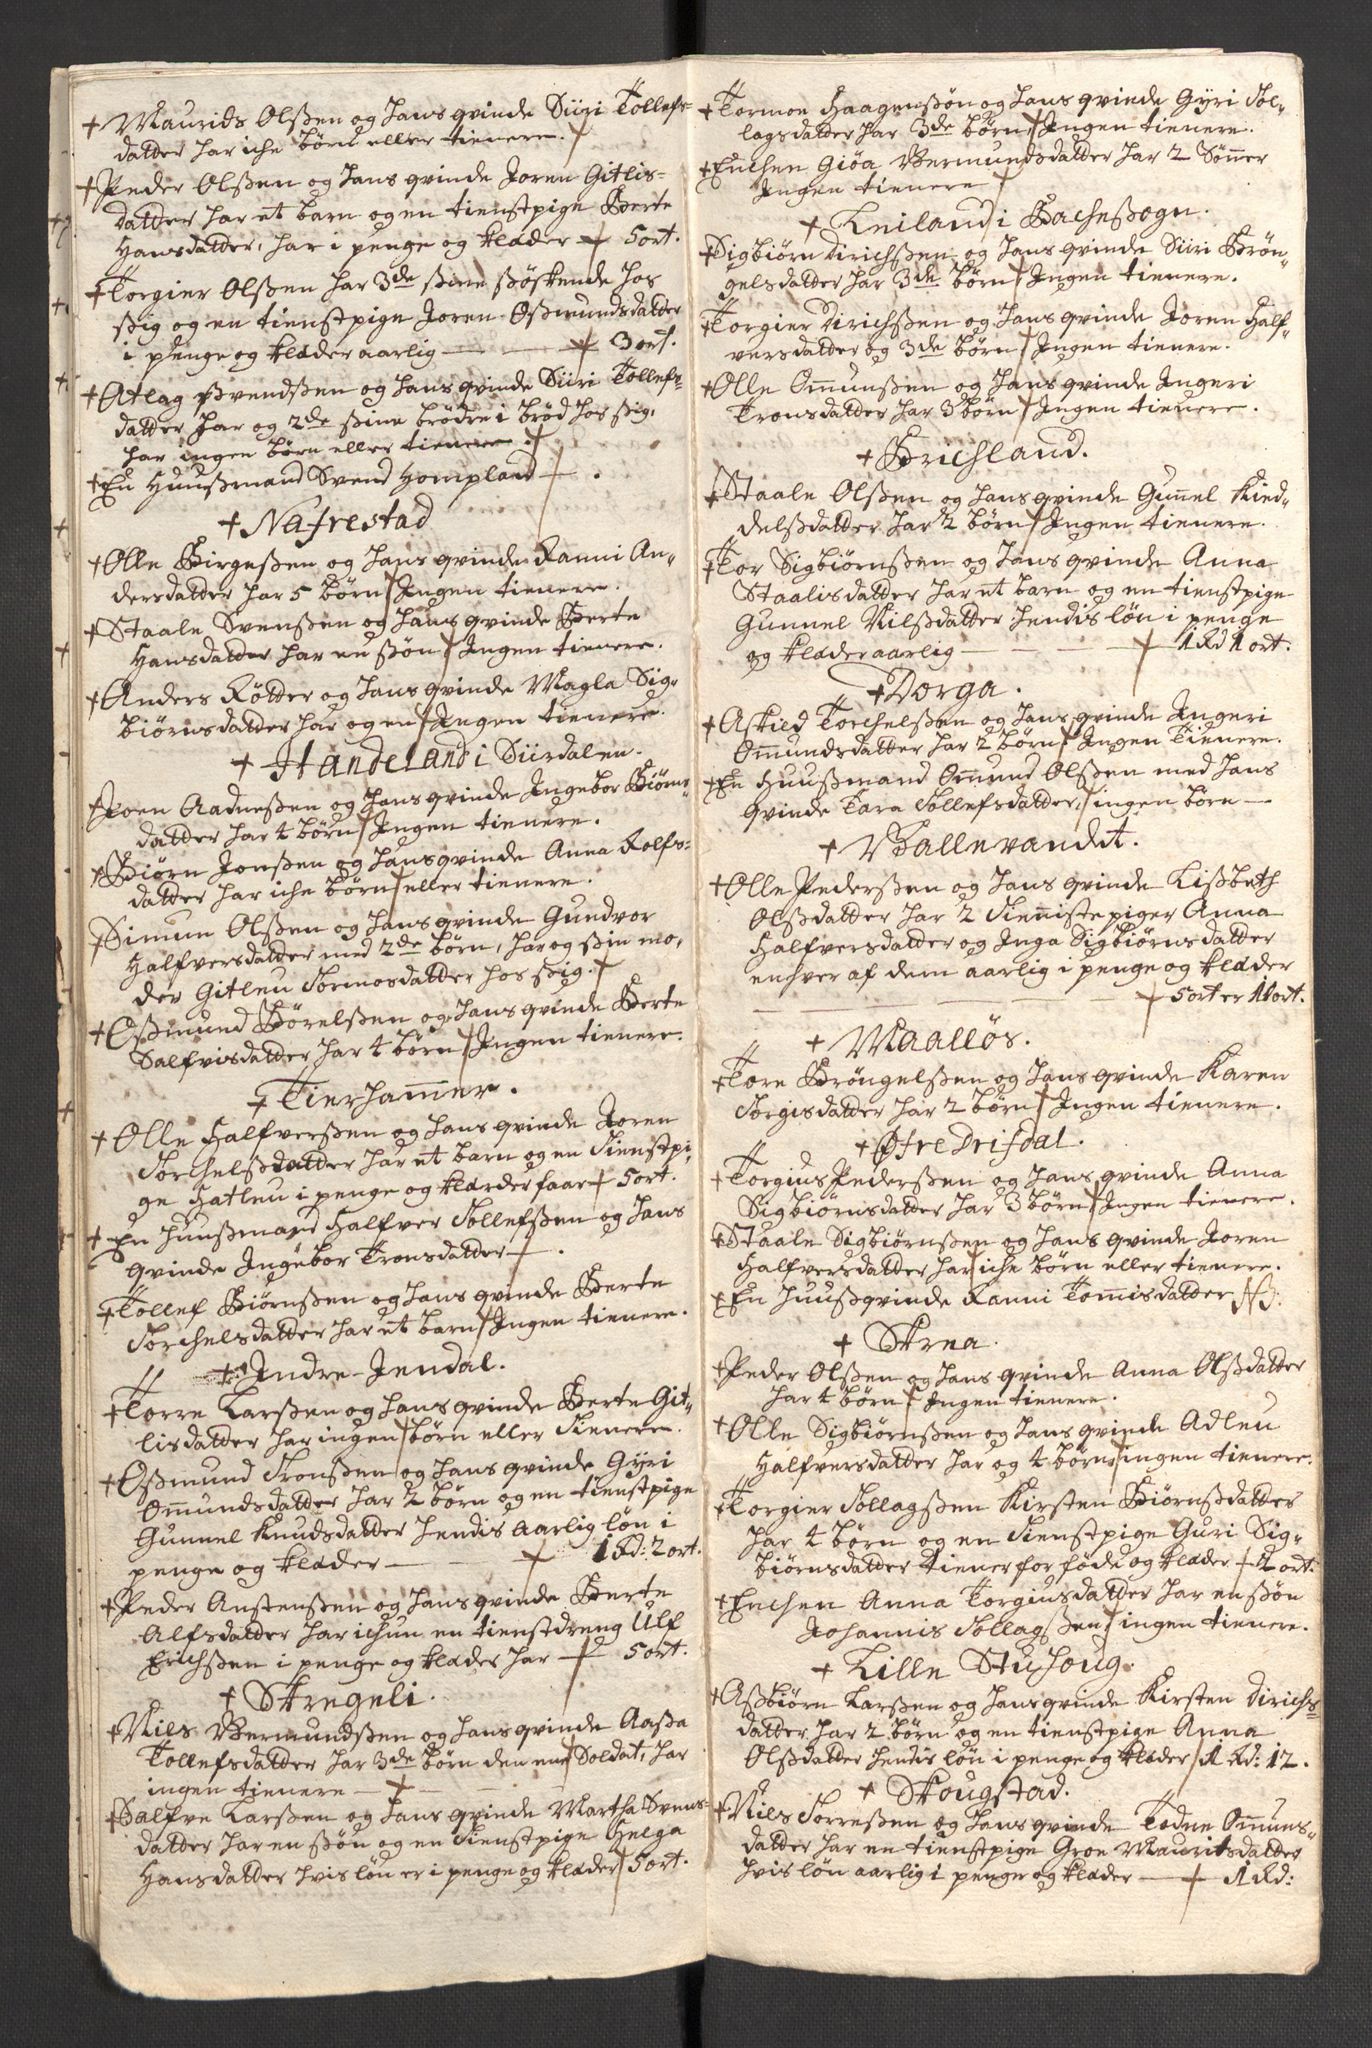 + Maurids Olsßen og hans qvinde Siiri Tollefs=
datter har iche børn eller tienere.
+ Peder Olsßen og hans qvinde Joren Gitlis=
datter har et barn og en tienstpige Berte
Hansdatter, har i penge og klæder + 5 ort.
+ Torgier Olsßen har 3de ßine ßøskende hos
ßig og en tienstpige Joren Oßmundsdatter
i penge og klæder aarlig — + 3 ort.
+ Atlag ßvendsßen og hans qvinde Siiri Tollefs=
datter har og 2de ßine brødre i brød hos ßig,
har ingen børn eller tienere.
+ En Huußmand Svend Hompland + .
+ Nafrestad
+ Olle Birgesßen og hans qvinde Ranni An=
dersdatter har 5 børn / Ingen tienere.
+ Staale Svensßen og hans qvinde Berte
Hansdatter har en ßøn / Ingen tienere.
+ Anders Røtter og hans qvinde Magla Sig=
biørnsdatter har og en / Ingen tienere.
+ Handeland i Siirdalen.
+ Joen Aadnesßen og hans qvinde Ingebor Biørns=
datter har 4 børn / Ingen tienere.
+ Biørn Jonsßen og hans qvinde Anna Rolfs=
datter har iche børn / eller tienere.
+ Simun Olsßen og hans qvinde Gundvor
Halfversdatter med 2de børn, har og ßin mo=
der Gitleu Tormosdatter hos ßig. +
+ Oßmund Børelsßen og hans qvinde Berte
Salfvisdatter har 4 børn / Ingen tienere.
+ Tierhammer.
+ Olle Halfversßen og hans qvinde Joren
Torchelsdatter har et barn og en Tienstpi=
ge Hatleu i penge og klæder faar + 5 ort.
+ En Huußmand Halfver Tollefsßen og hans
qvinde Ingebor Tronsdatter + .
+ Tollef Biørnsßen og hans qvinde Berte
Torchelsdatter har et barn / Ingen tienere.
+ Indre-Jendal.
+ Torre Larsßen og hans qvinde Berte Git=
lisdatter har ingen / børn eller Tienere.
+ Oßmund Tronsßen og hans qvinde Gyri
Ommundsdatter har 2 børn og en tienstpige
Gunnel Knudsdatter hendis aarlig løn i
penge og klæder — + 1 Rd: 2 ort.
+ Peder Anstensßen og hans qvinde Berte
Alfsdatter har ichun en tienstdreng Ulf
Erichsßen i penge og klæder har + 5 ort.
+ Skregeli.
+ Niels Vermundsßen og hans qvinde Aaßa
Tollefsdatter har 3de børn den ene Soldat, har
ingen tienere — +
+ Salfve Larsßen og hans qvinde Martha Svens=
datter har en ßøn og en Tienstpige Helga
Hansdatter hvis løn er i penge og klæder / 5 ort.
+ Tormoe Haagensßøn og hans qvinde Gyri Sol=
lagsdatter har 3de børn / Ingen tienere.
+ Enchen Giøa Vermundsdatter har 2 Sønner
Ingen tienere
+ Leiland i Bachesogn.
+ Sigbiørn Dirichsßen og hans qvinde Siiri Brøn=
gelsdatter har 3de børn / Ingen tienere.
+ Torgier Dirichsßen og hans qvinde Joren Half=
versdatter og 3de børn / Ingen tienere.
+ Olle Ommunsßen og hans qvinde Ingeri
Tronsdatter har 3 børn / Ingen tienere.
+ Brichland.
+ Staale Olsßen og hans qvinde Gunnel Kied=
delsdatter har 2 børn / Ingen tienere.
+ Tor Sigbiørnsßen og hans qvinde Anna
Staalisdatter har et barn og en tienstpige
Gunnel Nilsdatter hendis løn i penge
og klæder aarlig — + 1 Rd 1 ort.
+ Dorga.
+ Askild Torchelsßen og hans qvinde Ingeri
Ommundsdatter har 2 børn / Ingen Tienere.
+ En Huußmand Ommund Olsßen med hans
qvinde Tara Tollefsdatter, / ingen børn —
+ Vallevandet.
+ Olle Pedersßen og hans qvinde Lisbeth
Olsdatter har 2 Tienniste piger Anna
Halfversdatter og Inga Sigbiørnsdatter
enhver af dem aarlig i penge og klæder
+ 5 ort er 10 ort.
+ Maalløs.
+ Tore Brøngelsßen og hans qvinde Karen
Torgisdatter har 2 børn / Ingen tienere.
+ Øfre Drifdal.
+ Torgius Pedersßen og hans qvinde Anna
Sigbiørnsdatter har 3 børn / Ingen tienere.
+ Staale Sigbiørnsßen og hans qvinde Joren
Halfversdatter har iche børn eller tienere.
+ En huußqvinde Ranni Tomisdatter
+ Skrea.
+ Peder Olsßen og hans qvinde Anna Olsdatter
har 4 børn / Ingen tienere.
+ Olle Sigbiørnsßen og hans qvinde Adleu
Halfversdatter har og 4 børn / ingen tienere.
+ Torgier Tollagsßen Kirsten Biørnsdatter
har 4 børn og en Tienstpige Guri Sig=
biørnsdatter tiener for føde og klæder + 4 ort.
+ Enchen Anna Torgiusdatter har en ßøn
Johannis Tollagsßen / ingen tienere.
+ Lille Stuhoug.
+ Asbiørn Larsßen og hans qvinde Kirsten Dirichs=
datter har 2 børn og en tienstpige Anna
Olsdatter hendis løn i penge og klæder / 1 Rd: 12.
+ Skougstad.
+ Niels Torresßen og hans qvinde Todne Ommuns=
datter har en tienstpige Groe Mauritsdatter
hvis løn aarlig i penge og klæder — + 1 Rd: